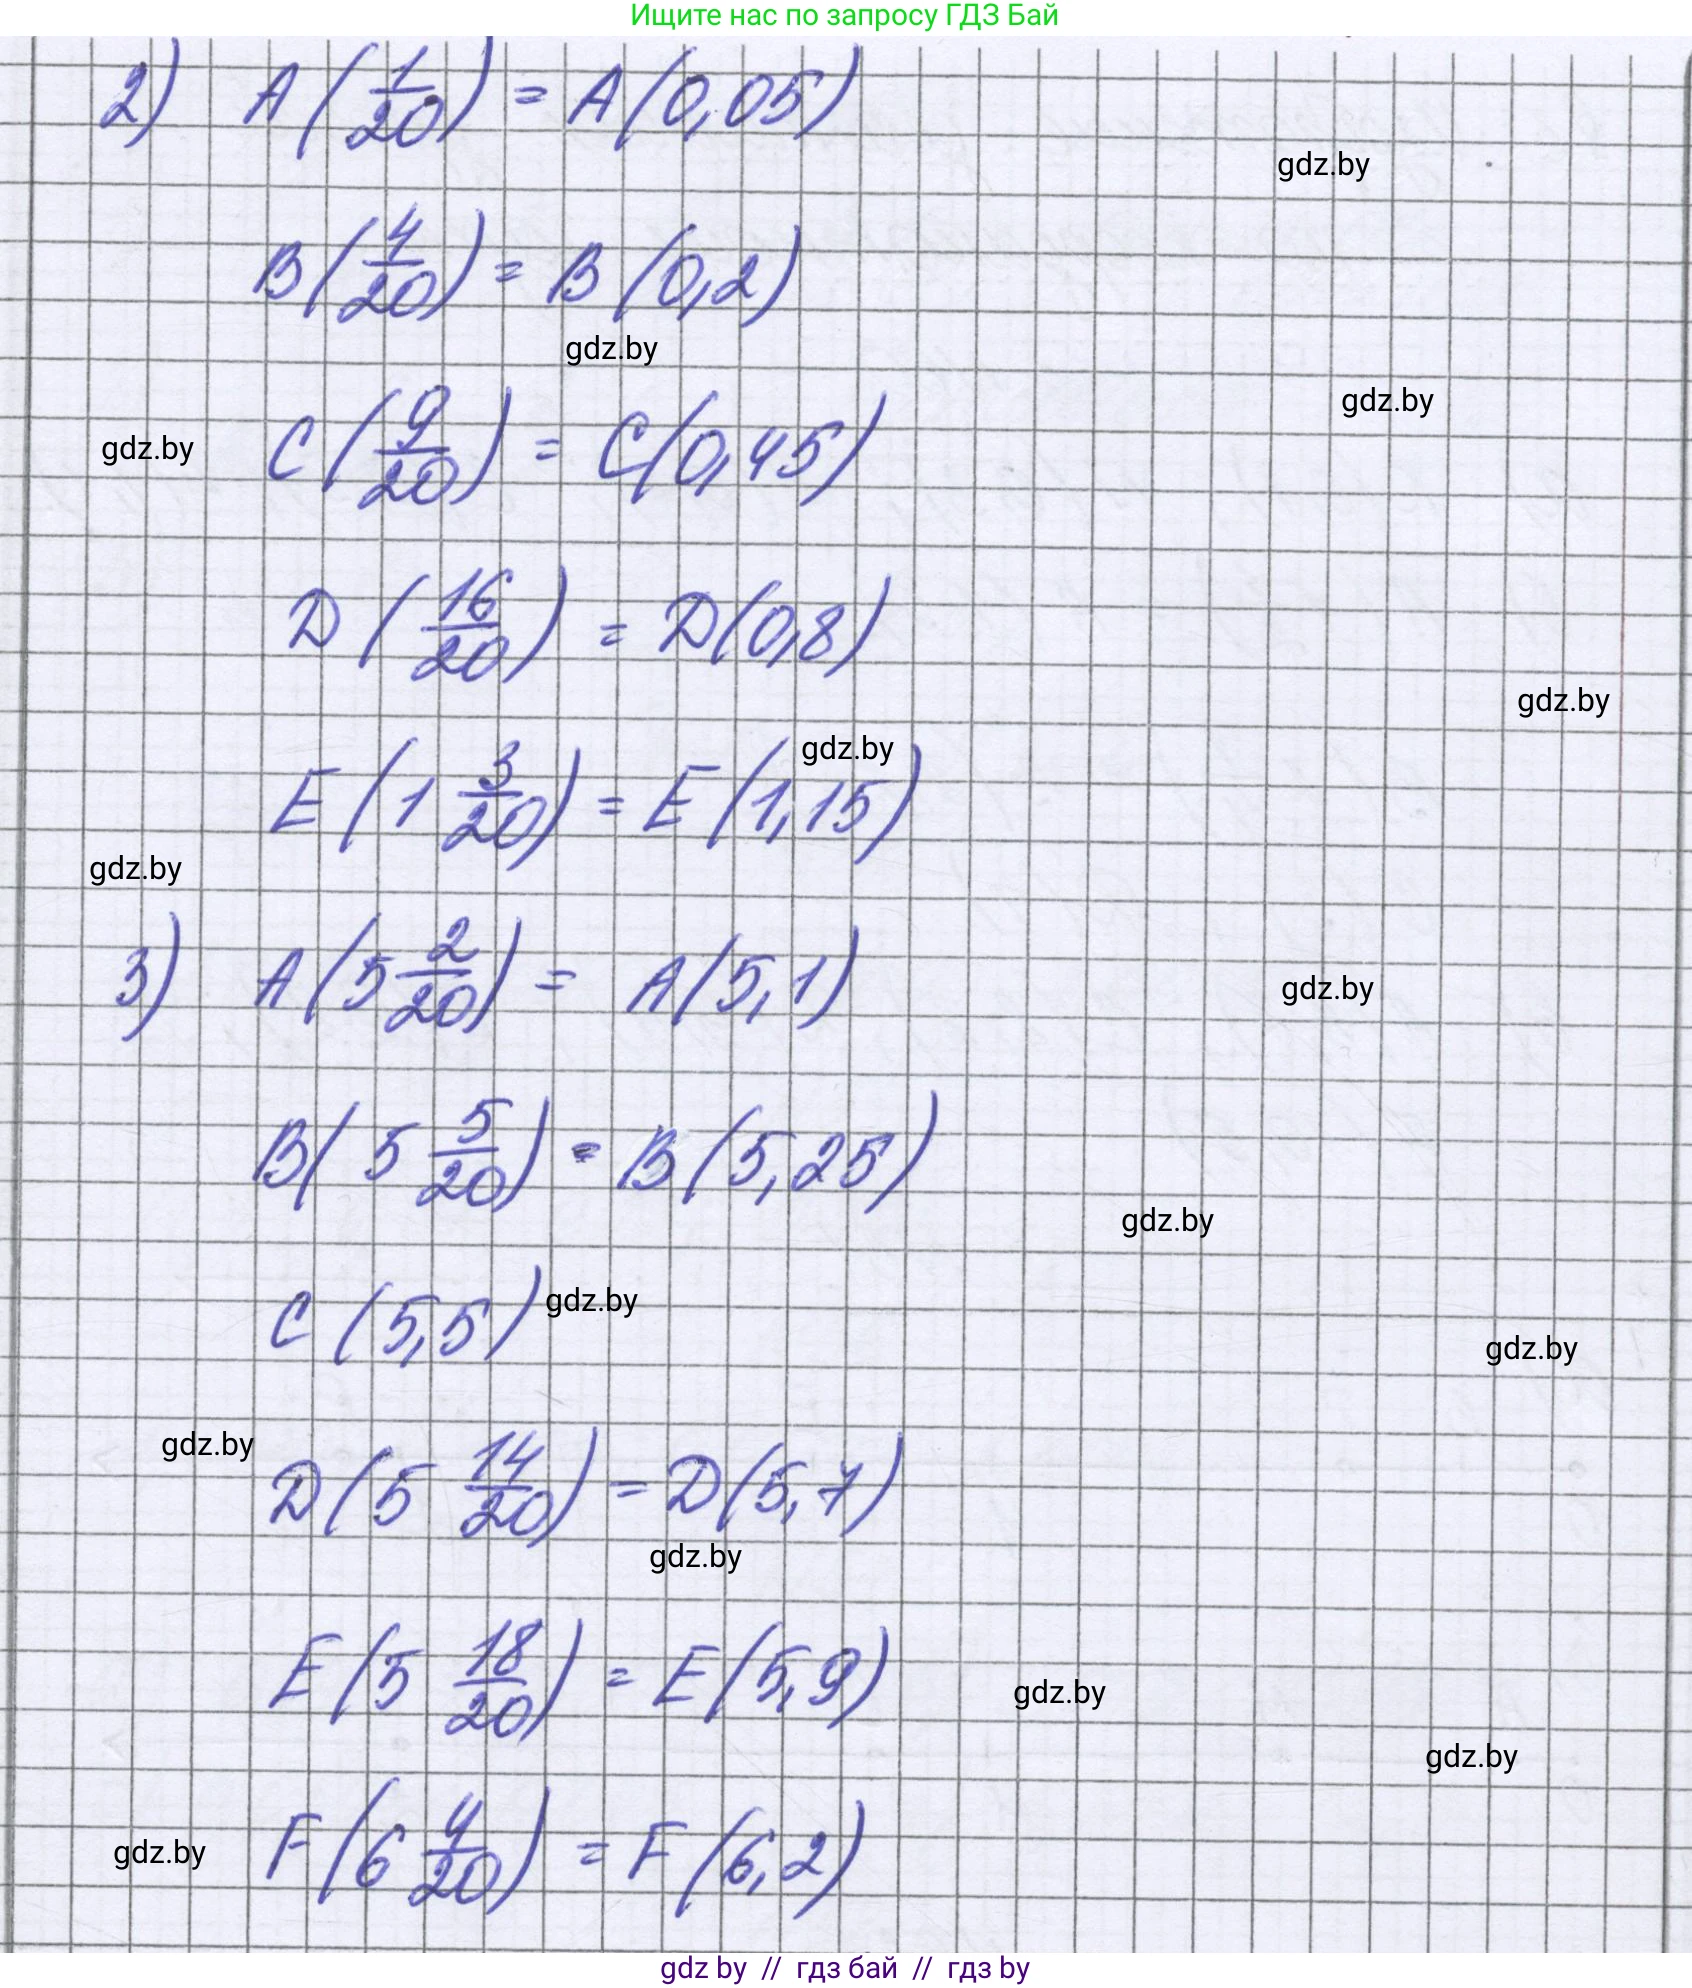 Ищите нас по запросу ГДЗ Бай
2) A(1/20) = A(0,05)
gdz.by
B(4/20) = B(0,2)
gdz.by
gdz.by
gdz.by C(9/20) = C(0,45)
D(16/20) = D(0,8)
gdz.by
gdz.by
E(1 3/20) = E(1,15)
gdz.by
3) A(5 2/20) = A(5,1)
gdz.by
B(5 5/20) = B(5,25)
gdz.by
C(5,5) gdz.by
gdz.by
gdz.by
D(5 14/20) = D(5,7)
gdz.by
E(5 18/20) = E(5,9)
gdz.by
gdz.by
gdz.by F(6 4/20) = F(6,2)
gdz by // гдз бай // гдз by